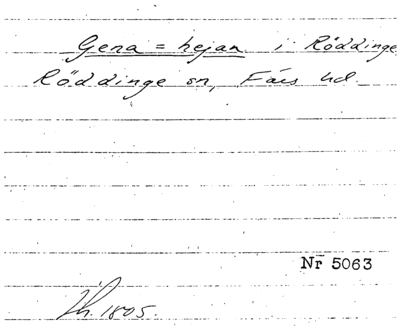 Gena = hejan i Röddinge
Röddinge sn, Färs hd
Nr 5063
Th. 1805.